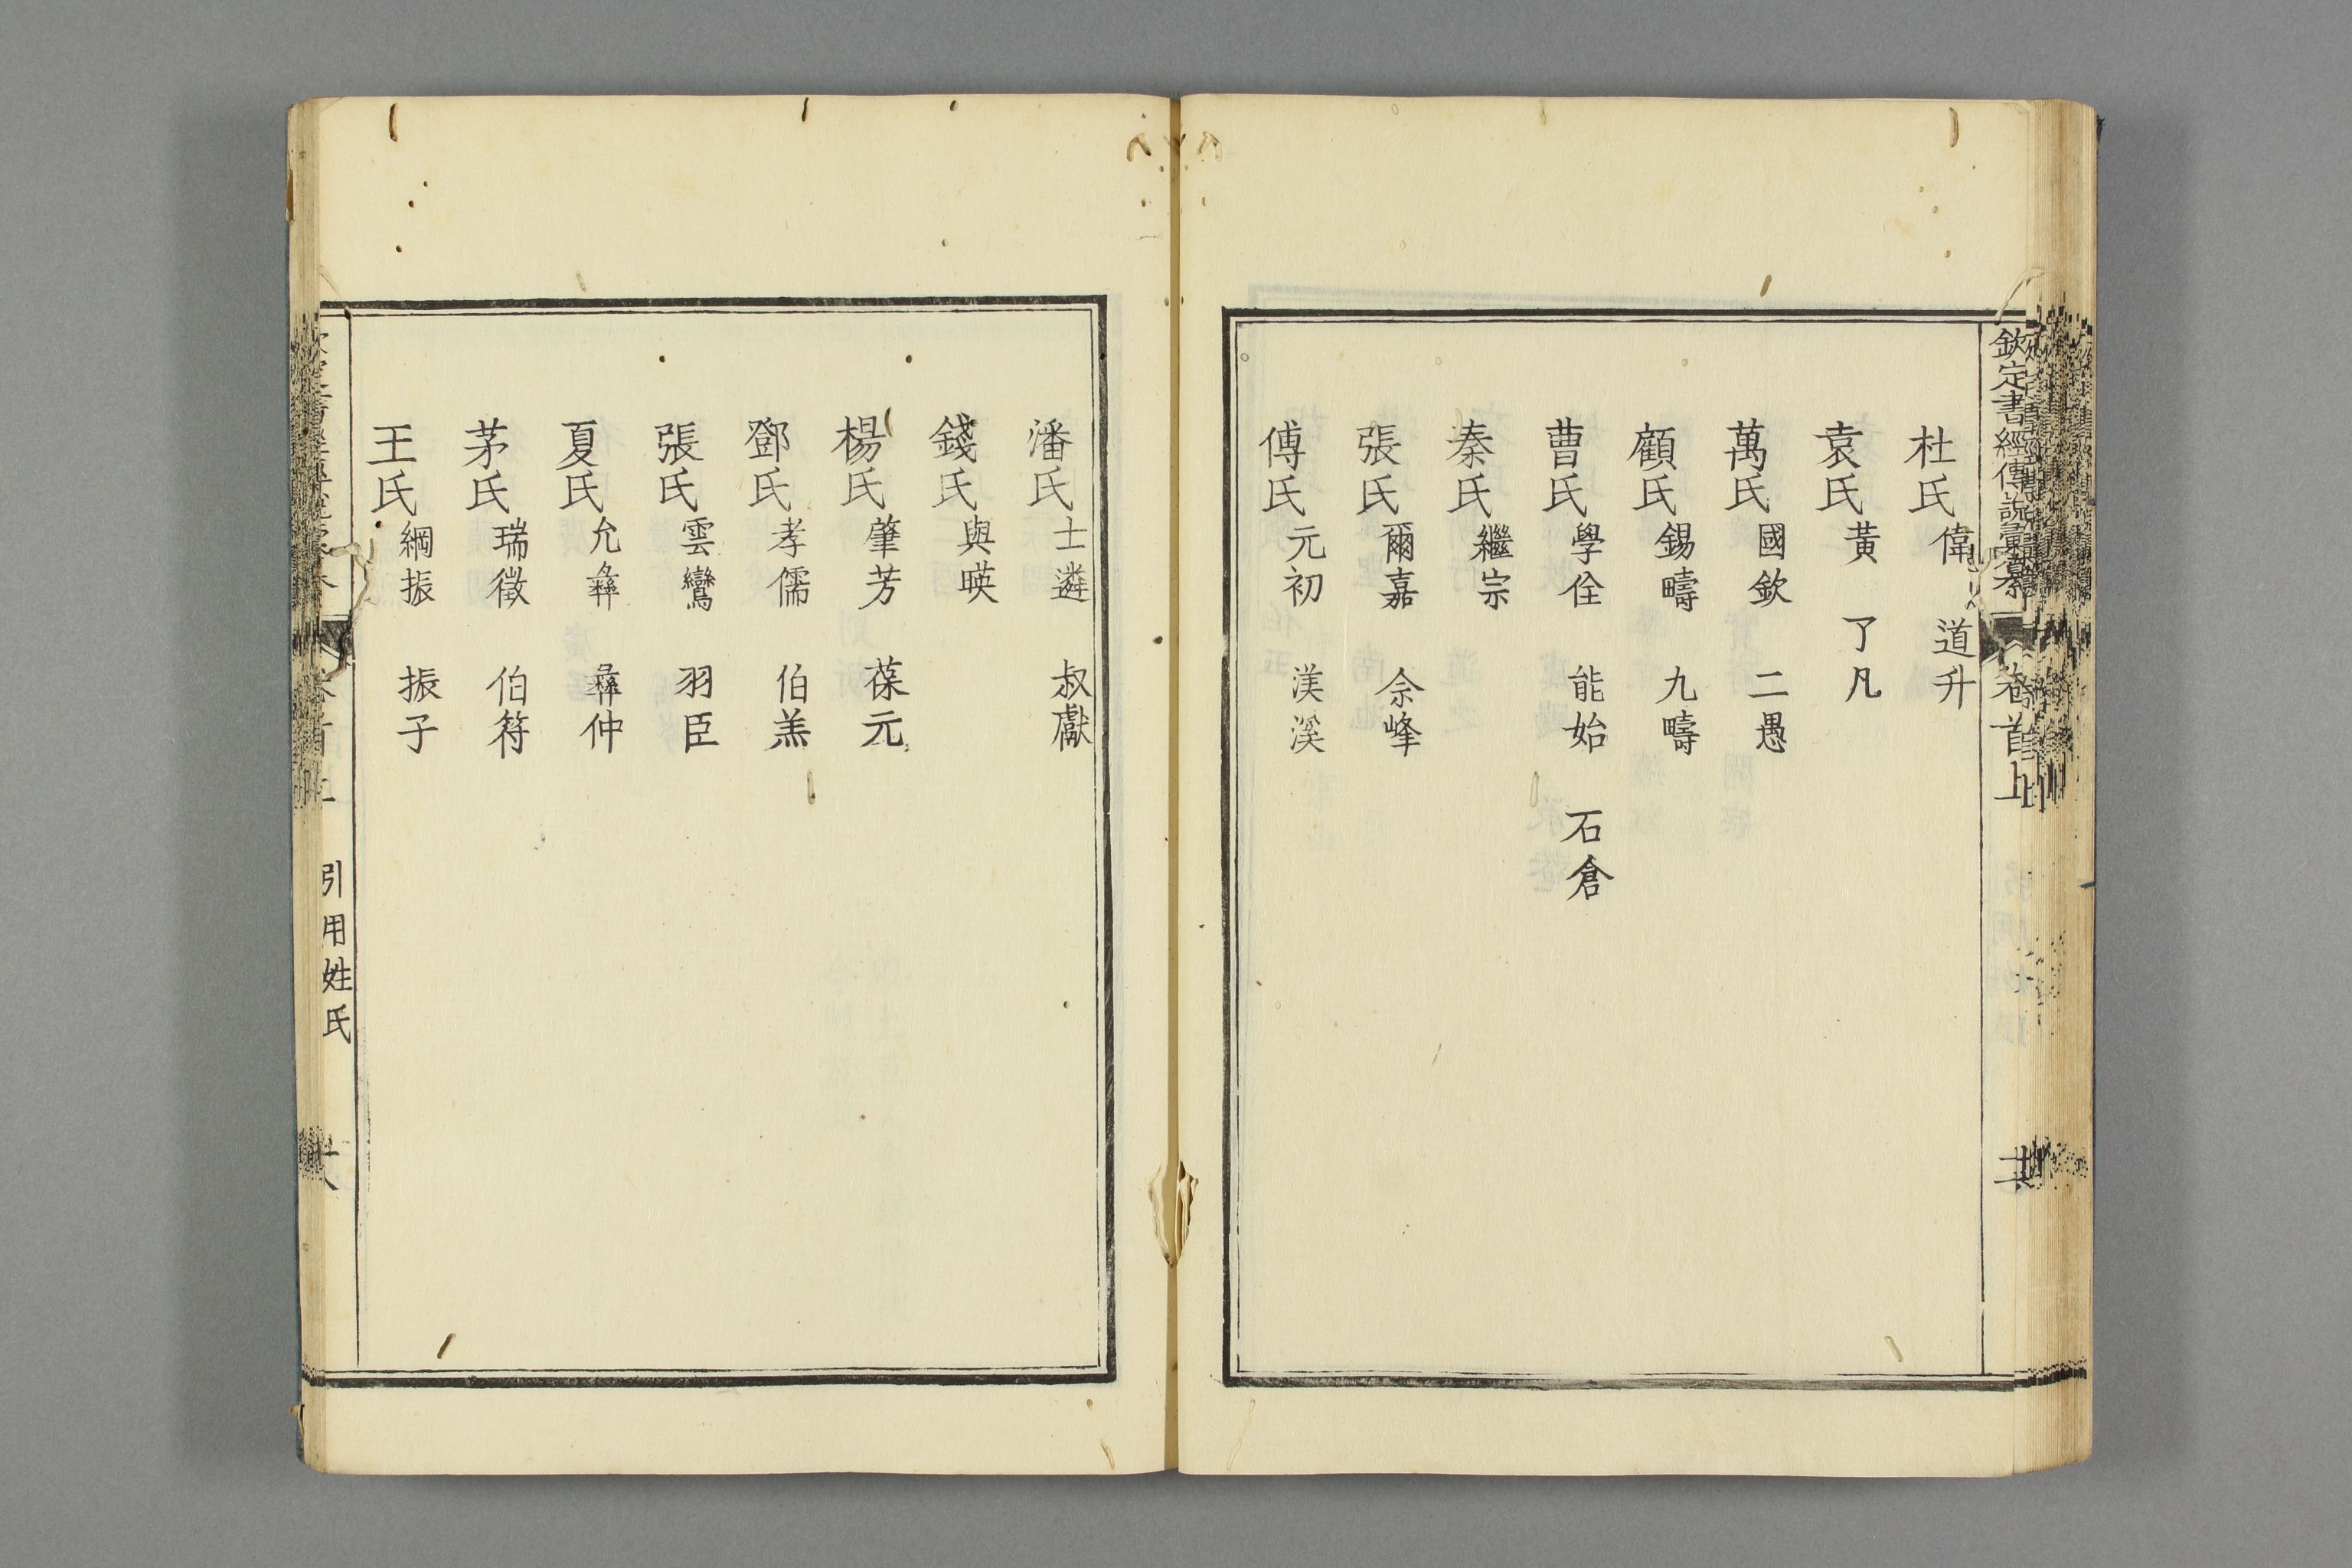 欽定書經傳說彙纂 卷首上
杜氏 偉 道升
袁氏 黃 了凡
萬氏 國欽 二愚
顧氏 錫疇 九疇
曹氏 學佺 能始 石倉
秦氏 繼宗
張氏 爾嘉 佘峰
傅氏 元初 渼溪
潘氏 士遴 叔獻
錢氏 與暎
楊氏 肇芳 葆元
鄧氏 孝儒 伯羔
張氏 雲鸞 羽臣
夏氏 允彝 彝仲
茅氏 瑞徵 伯符
王氏 綱振 振子
引用姓氏